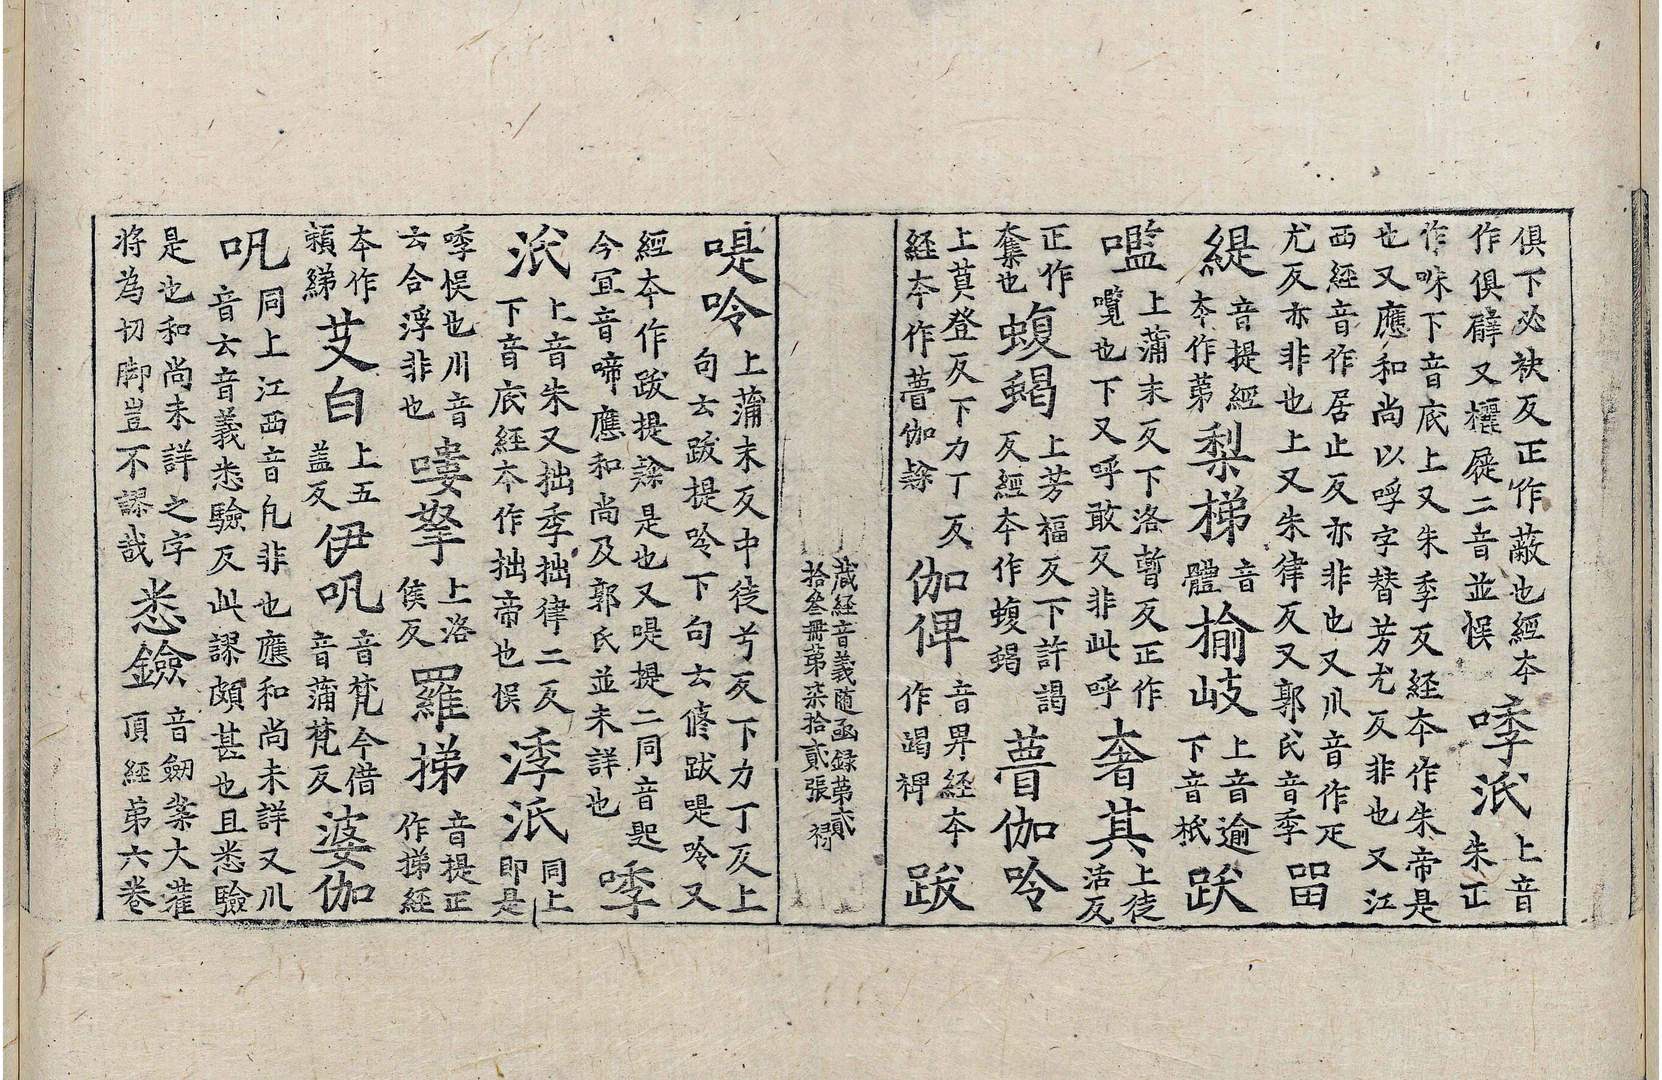 俱下必袂反正作蔽也經本
作俱躃又欏屣二音並悮
㖷泜
上音
朱正
作咮下音底上又朱季反經本作朱帝是
也又應和尚以呼字替芳尤反非也又江
西經音作居止反亦非也又川音作疋
尤反亦非也上又朱律反又郭氏音季
㽞
緹
音提經
本作第
梨梯
音
體
揄岐
上音逾
下音祇
跃
㘕
上蒲末反下洛暫反正作
嚂也下又呼敢反非此呼
奢其
上徒
活反
正作
奪也
蝮蝎
上芳福反下許謁
反經本作蝮蝎
瞢伽呤
上莫登反下力丁反
經本作瞢伽䑏
伽俾
音畀經本
作竭裨
跋
藏經音義随函録第貳
拾叁冊第柒拾貳張
㖷呤
上蒲末反中徒兮反下力丁反上
句云跋提呤下句云僁跋㖷呤又
經本作跋提䑏是也又㖷提二同音匙
今宜音啼應和尚及郭氏並未詳也
㖷
泜
上音朱又拙季拙律二反
下音底經本作拙帝也悮
㖷泜
同上
即是
㖷悮也川音
云合浮非也
嘍拏
上洛
侯反
羅挮
音提正
作挮經
本作
頼綈
艾白
上五
盖反
伊㕫
音梵今借
音蒲梵反
婆伽
㕫
同上江西音凡非也應和尚未詳又川
音云音義悉驗反此謬頗甚也且悉驗
是也和尚未詳之字
将為切脚豈不謬哉
悉鐱
音劒案大灌
頂經第六巻